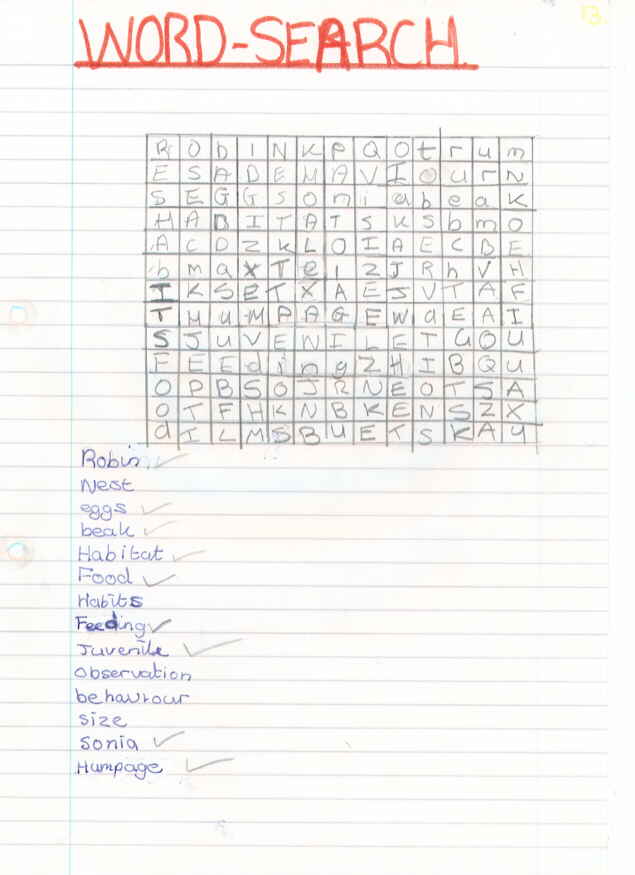 13.
WORD-SEARCH.
R O b I N K P Q O t r u m
E S A D E M A V I O u r N
S E G G S O n i a b e a K
H A B I T A T S K S b m O
A C D Z K L O I A E C B E
b m a x T e i Z J R h V H
I K S E T X A E J V T A F
T H u M P A G E W a E A I
S J u V E N I L E T G O U
F E E d i n g Z H I B Q U
O P B S O J R N E O T S A
O T F H K N B K E N S Z X
d I L M S B U E T S K A Y
Robin
Nest
eggs
beak
Habitat
Food
Habits
Feeding
Juvenile
Observation
behaviour
size
Sonia
Humpage